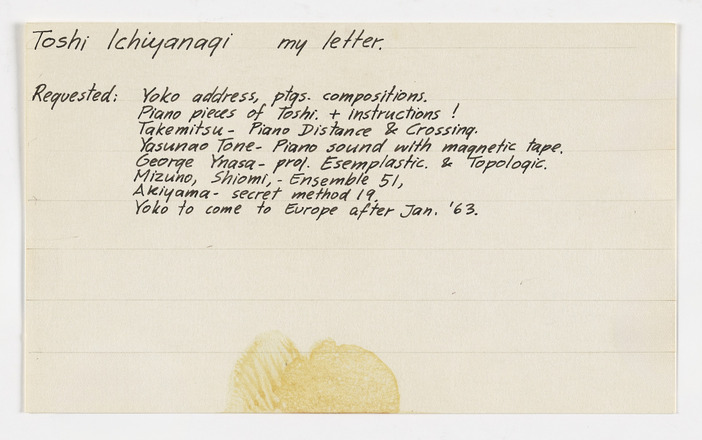 Toshi Ichiyanagi my letter.
Requested: Yoko address, ptgs. compositions.
Piano pieces of Toshi. + instructions !
Takemitsu - Piano Distance & Crossing.
Yasunao Tone - Piano sound with magnetic tape.
George Ynasa - proj. Esemplastic. & Topologic.
Mizuno, Shiomi, - Ensemble 51,
Akiyama - secret method 19.
Yoko to come to Europe after Jan. '63.